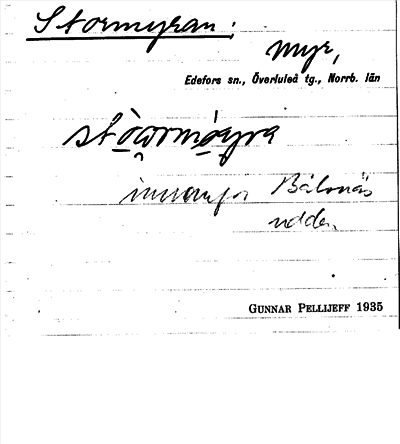 Stormyran:
myr,
Edefors sn., Överluleå tg., Norrb. län
innanför Bålsnäs
udden.
GUNNAR PELLIJEFF 1935